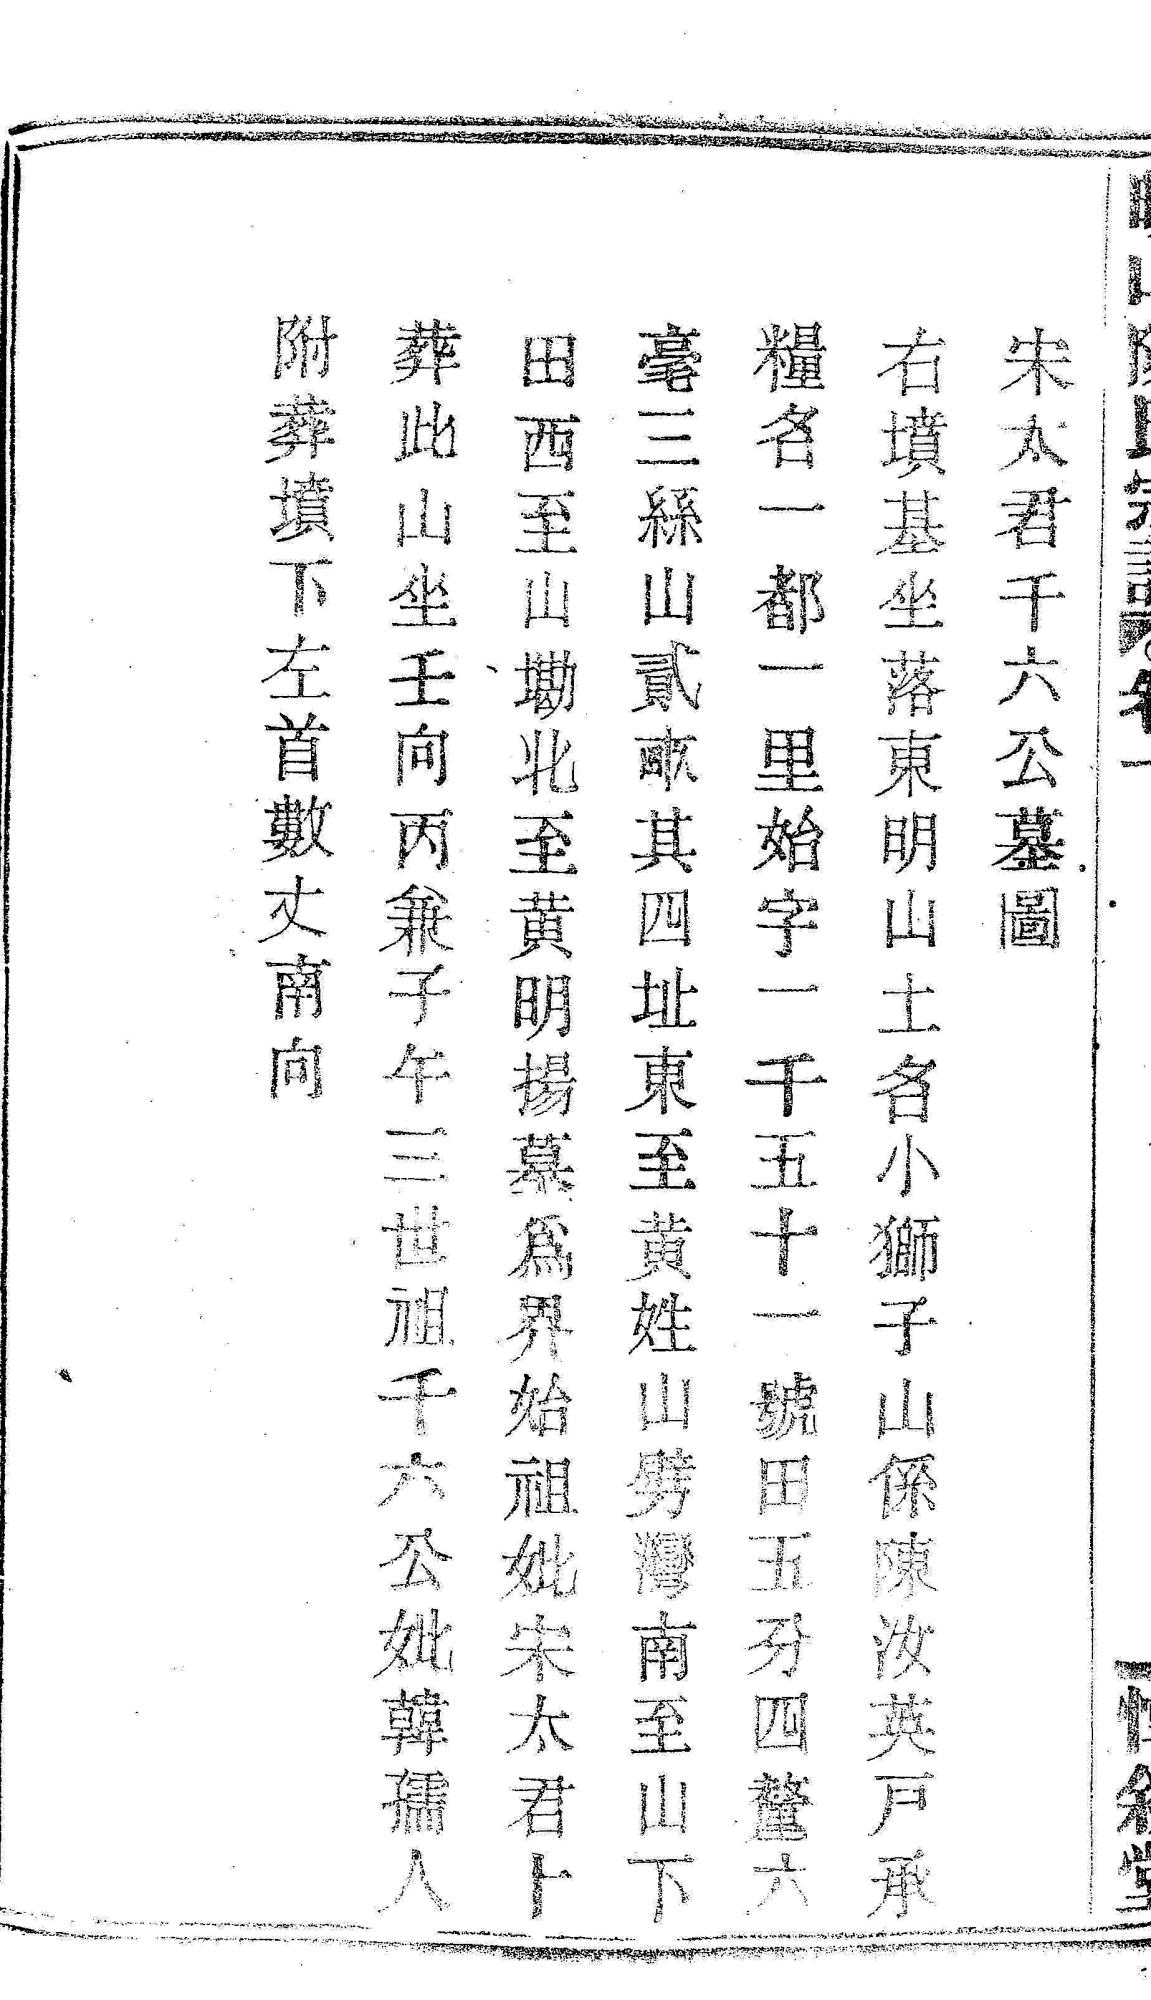 宋太君千六公墓圖
右墳基坐落東明山土名小獅子山係陳汝英戸承
糧名一都一里始字一千五十一號田五分四釐六
毫三絲山貳畝其四址東至黄姓山劈灣南至山下
田西至山坳北至黄明揚墓爲界始祖妣宋太君卜
葬此山坐壬向丙兼子午三世祖千六公妣韓孺人
附葬墳下左首數丈南向